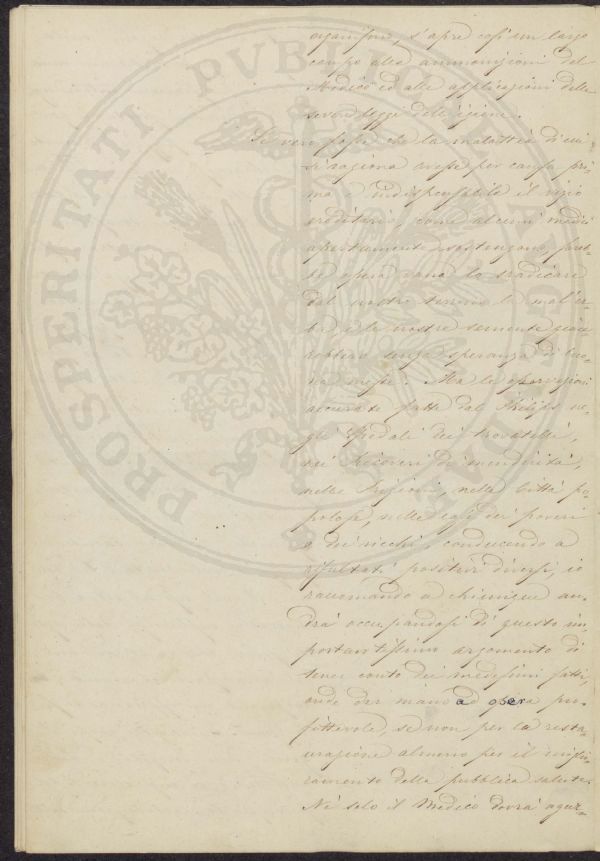 s'apre così un largo
campo alle ammonizioni del
Medico ed alle applicazioni delle
severe leggi dell'igiene.
Se ver fosse che la malattia di cui
si ragiona avesse per causa pri-
ma indispensabile il vizio
ereditario, come alcuni medici
apertamente sostengono, sareb-
be opera vana lo sradicare
dal nostro terreno le mal'er-
be, e le nostre semente giace
rebbero senza speranza di buo-
na messe. Ma le osservazioni
accurate fatte dal Phelips ne-
gli Spedali dei trovatelli,
nei Ricoveri di mendicità,
nelle Prigioni, nelle Città po-
polose, nelle case dei poveri
e dei ricchi conducendo a
risultati positivi diversi, io
raccomando a chiunque an-
drà occupandosi di questo im-
portantissimo argomento di
tener conto dei medesimi fatti,
onde dar mano ad opera pro-
fittevole, se non per la resta-
urazione almeno per il miglio-
ramento della pubblica salute.
Nè solo il Medico dovrà aguz-
PROSPERITATI PVBLICAE